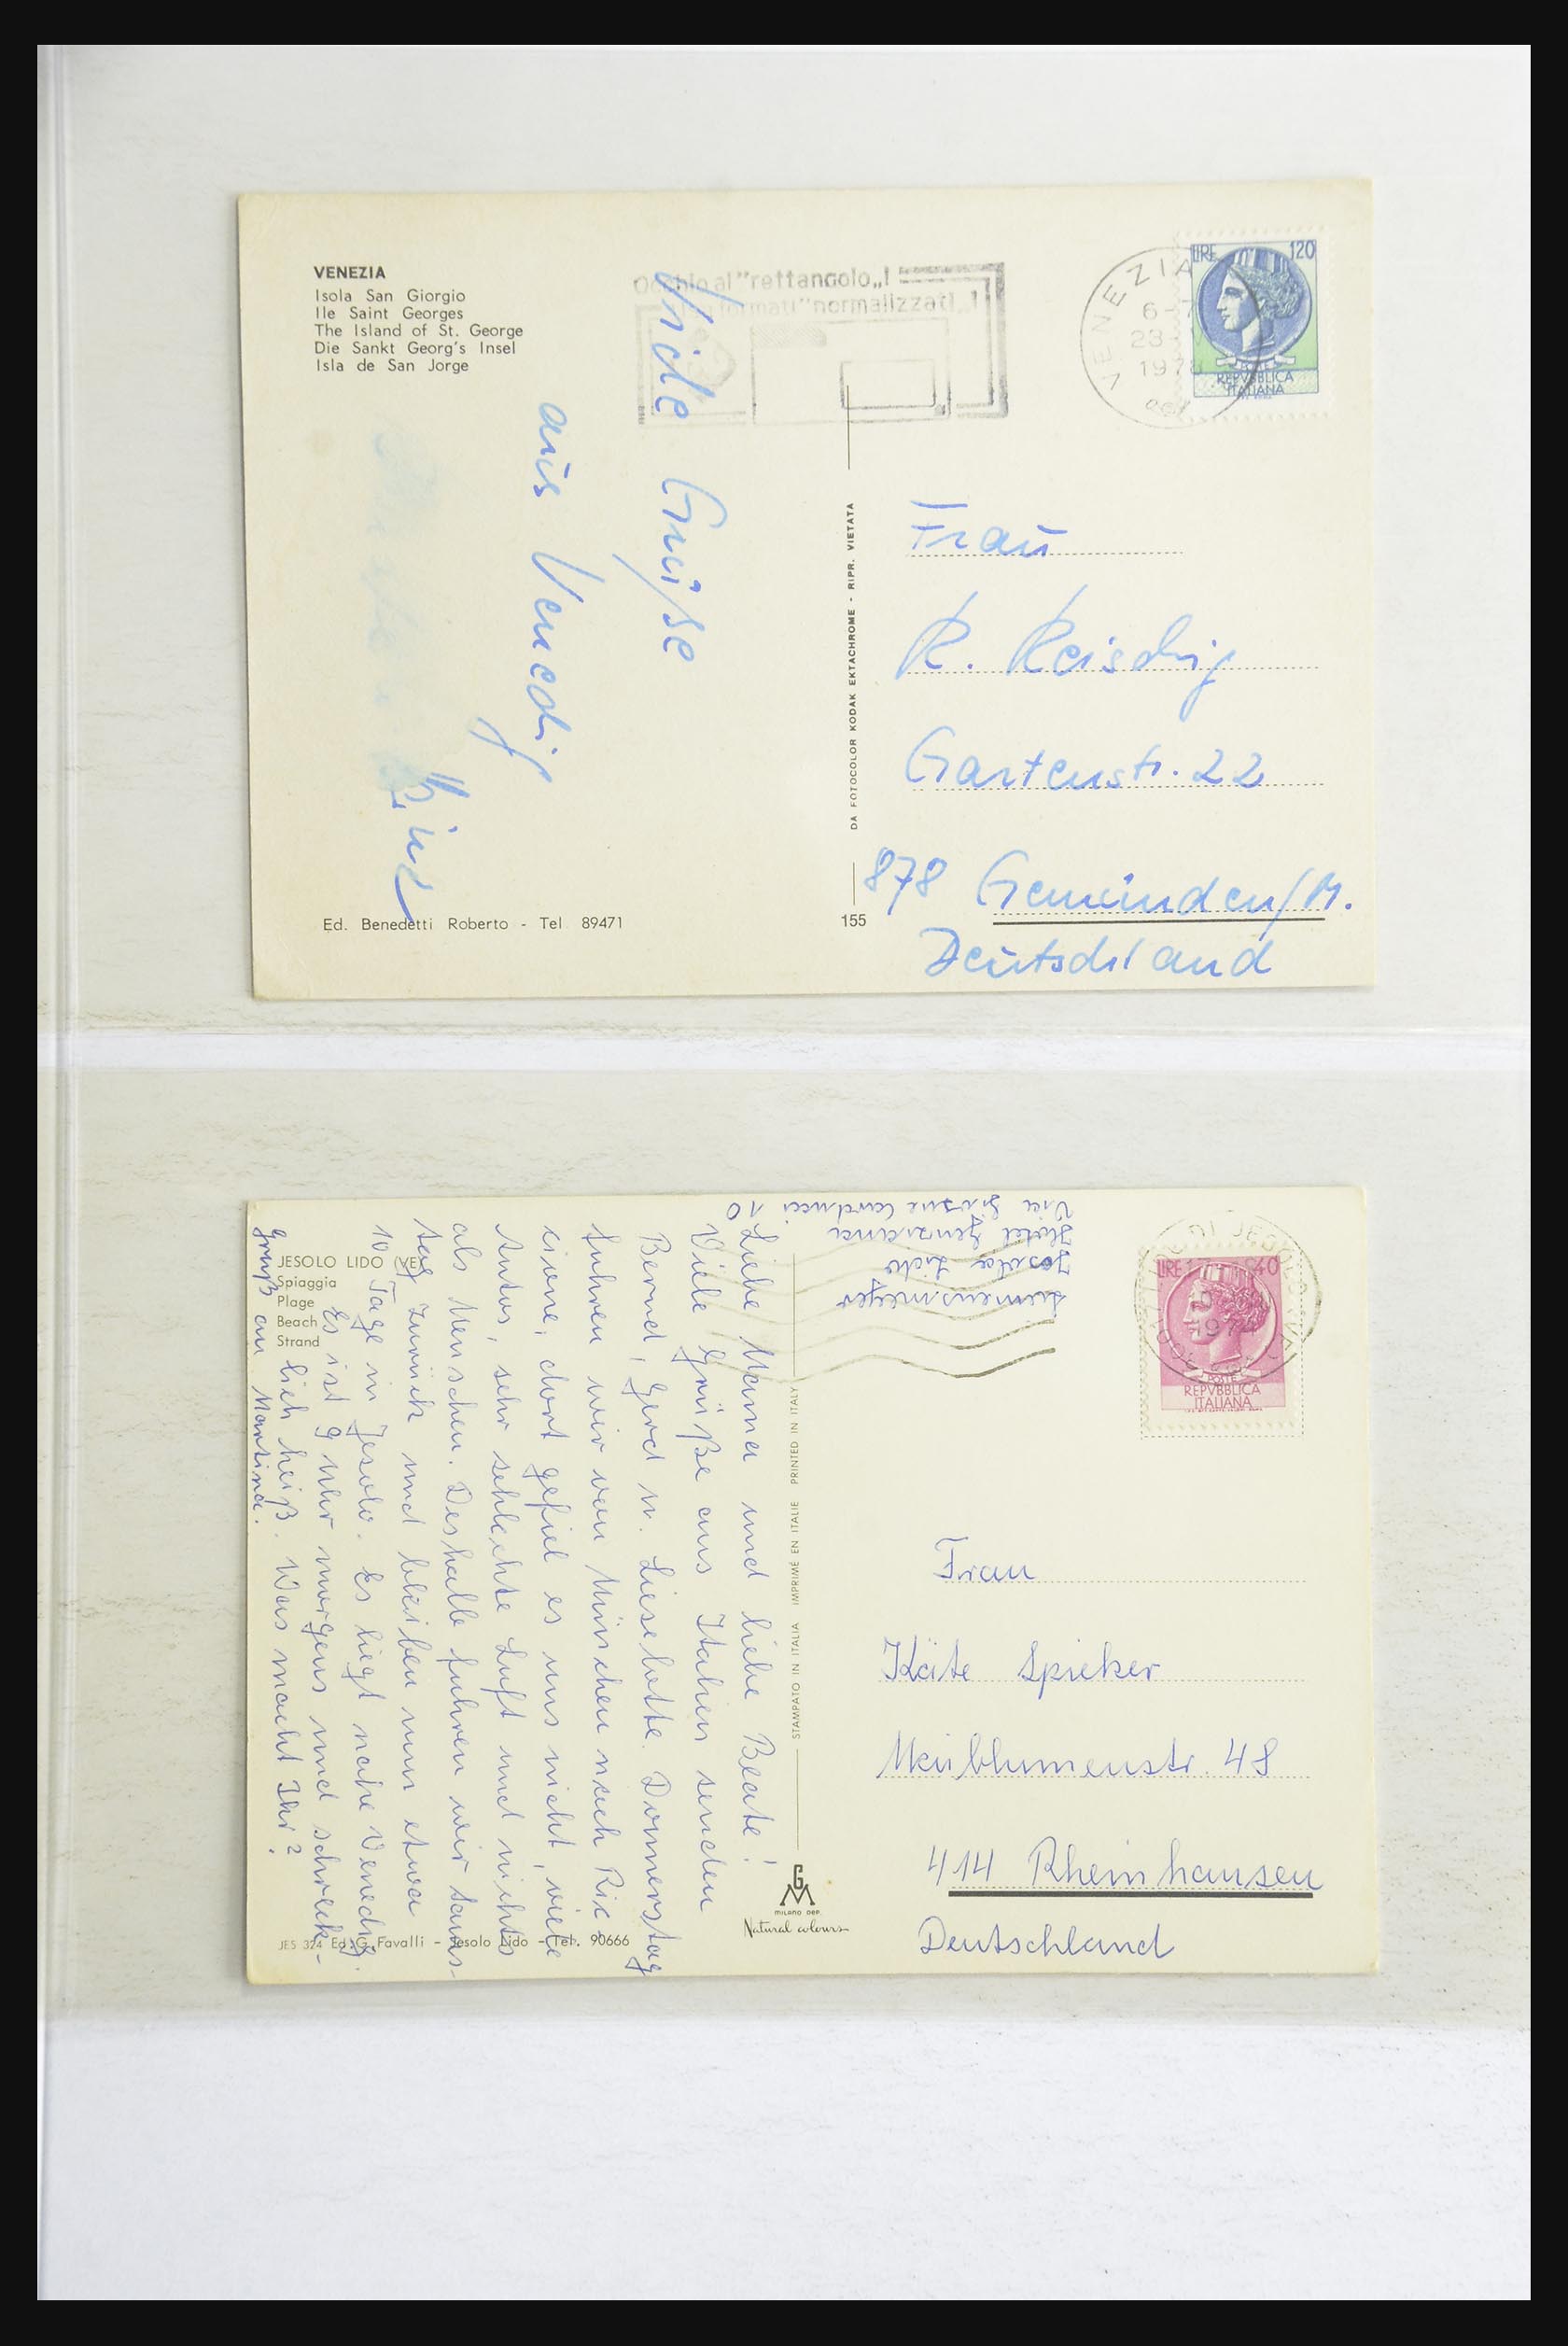 VENEZIA
Isola San Giorgio
Ile Saint Georges
The Island of St. George
Die Sankt Georg's Insel
Isla de San Jorge
Occhio al "rettangolo„!
formati "normalizzati„!
VENEZIA
6-7
23
197
LIRE 120
POSTE
REPVBBLICA
ITALIANA
Viele Grüsse
aus Venedig
DA FOTOCOLOR KODAK EKTACHROME - RIPR. VIETATA
Frau
R. Reischig
Gartenstr. 22
878 Gemünden/M.
Deutschland
Ed. Benedetti Roberto - Tel 89471
155
JESOLO LIDO (VE)
Spiaggia
Plage
Beach
Strand
Jesolo Lido
Hotel Genziana
Via Giosue Carducci 10
LIRE 40
197
POSTE
REPVBBLICA
ITALIANA
Liebe Mama und liebe Beate!
Viele Grüße aus Italien senden
Bernd, Gerd u. Lieselotte. Donnerstag
fuhren wir von München nach Ric-
cione, dort gefiel es uns nicht, viele
Autos, sehr schlechte Luft und nichts
als Menschen. Deshalb fuhren wir Sams-
tag zurück und bleiben nun etwa
10 Tage in Jesolo. Es liegt nahe Venedig.
Es ist 9 Uhr morgens und schreck-
lich heiß. Was macht Ihr?
Gruß an Martina.
STAMPATO IN ITALIA IMPRIMÉ EN ITALIE PRINTED IN ITALY
Frau
Käte Spieker
Maiblumenstr. 48
414 Rheinhausen
Deutschland
MILANO DEP.
Natural colours
JES 324 Ed. G. Favalli - Jesolo Lido - Tel. 90666